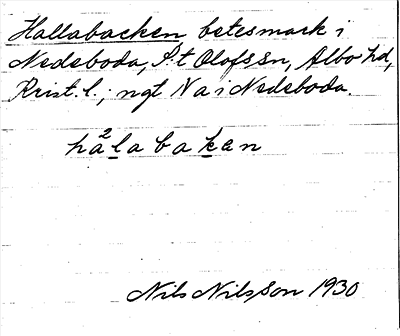 Hallabacken betesmark i
Nedeboda, S:t Olofs sn, Albo hd,
Krist. l.; ngt N a i Nedeboda.
hà²labakæn
Nils Nilsson 1930